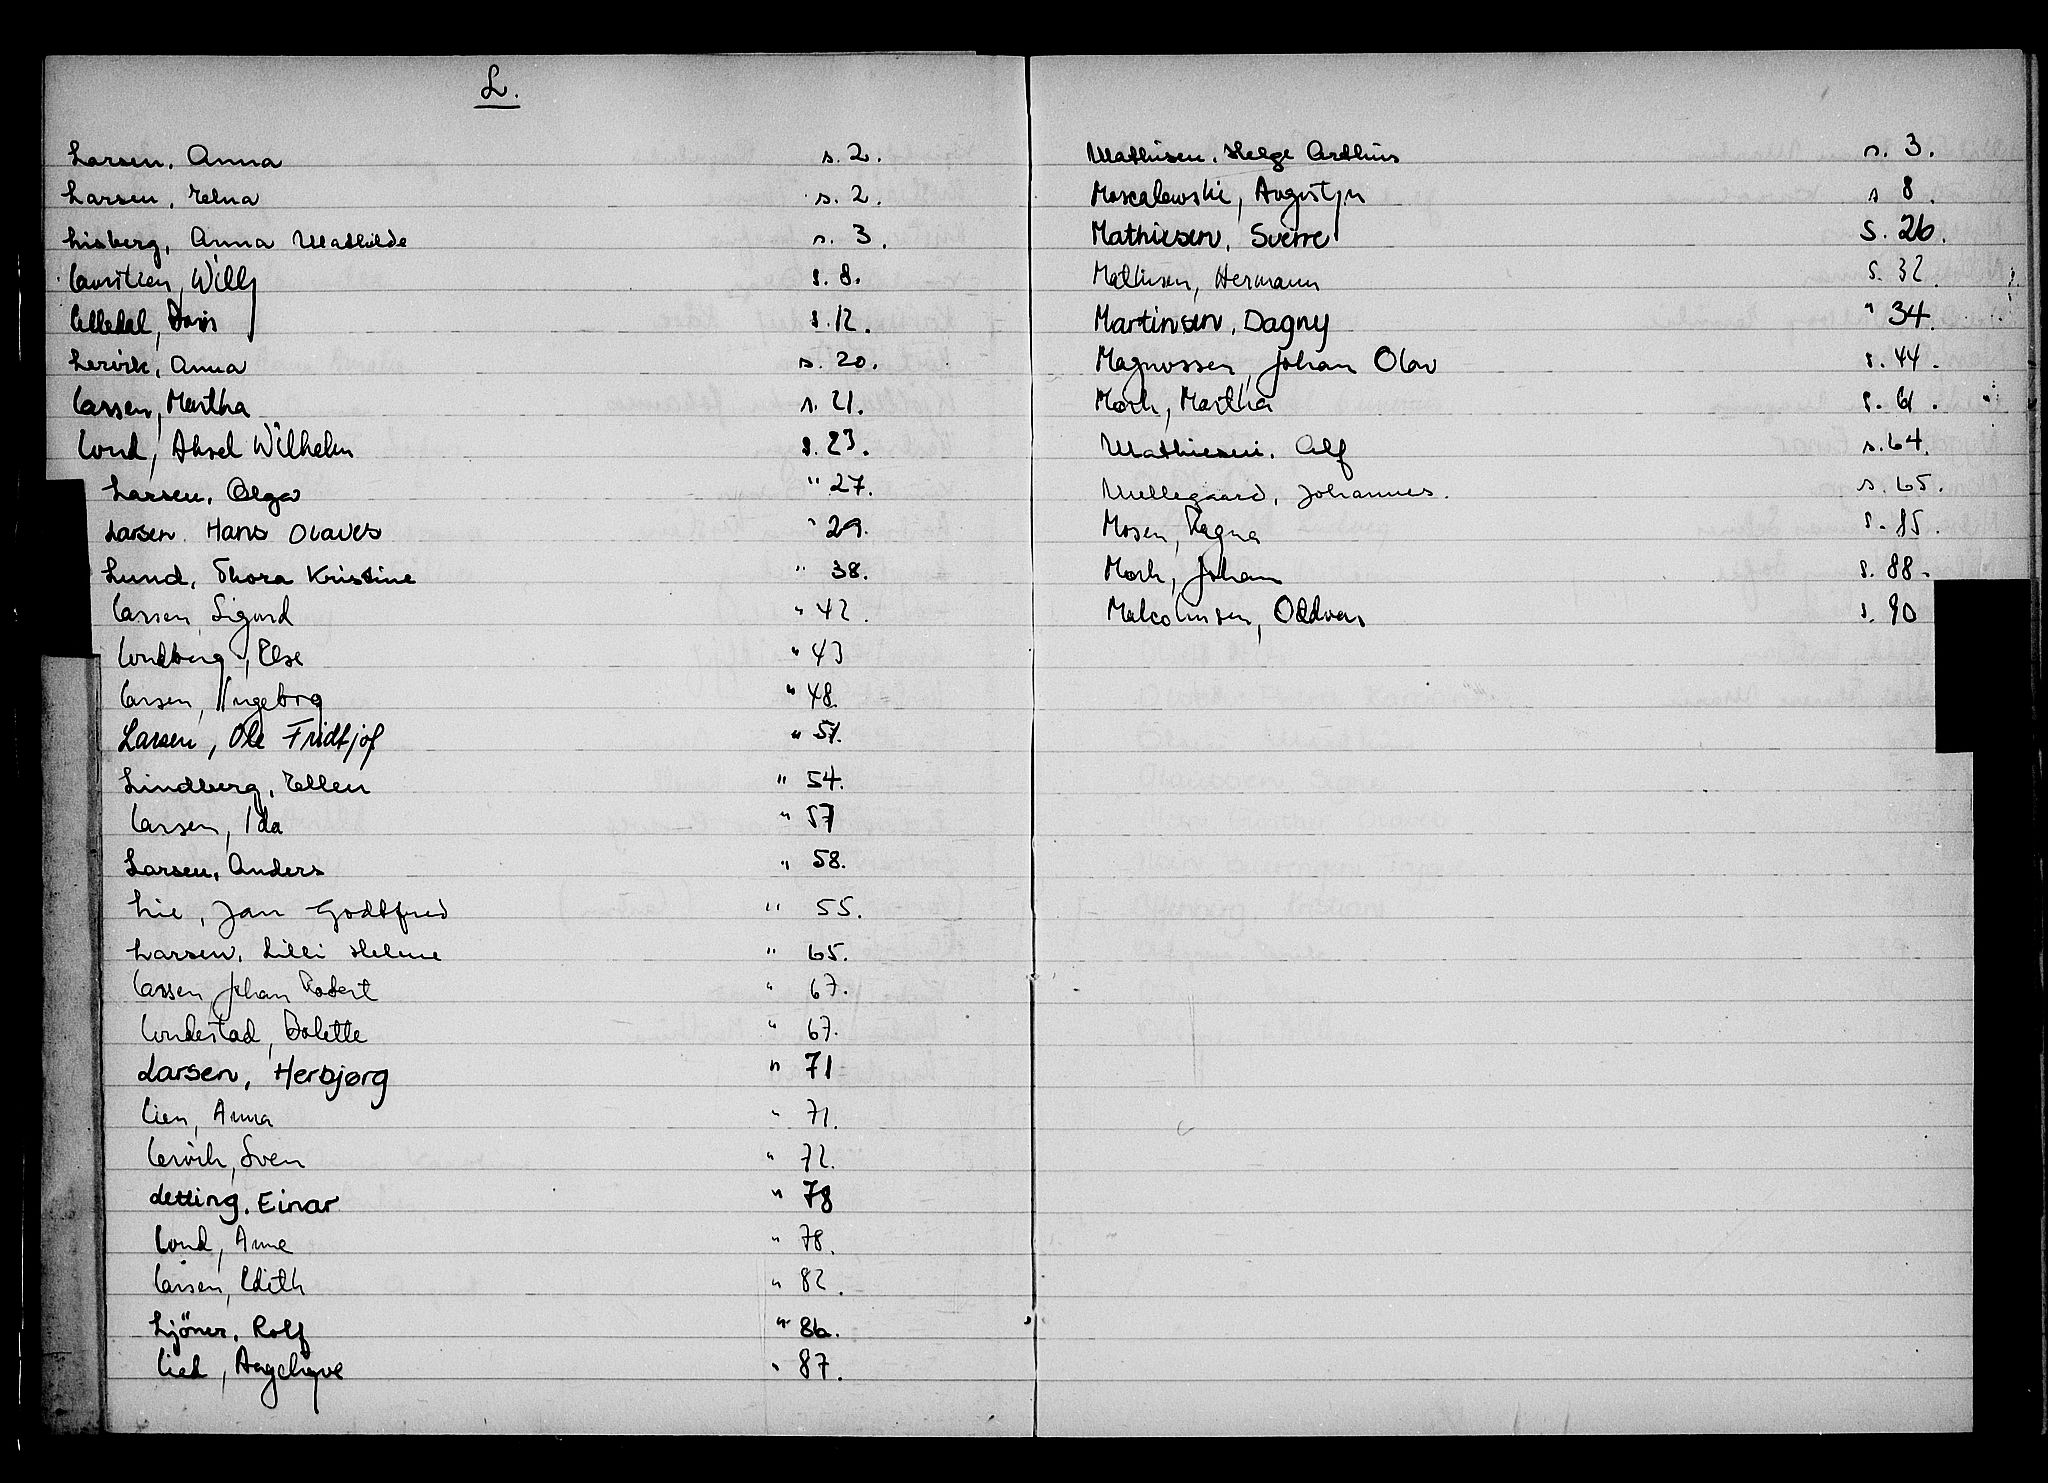 L.
Larsen, Anna s. 2.
Larsen, Edna s. 2.
Lisberg, Anna Mathilde s. 3.
Lauritzen, Willy s. 8.
Lilledal, Doris s. 12.
Lervik, Anna s. 20.
Larsen, Martha s. 21.
Lund, Aksel Wilhelm s. 23.
Larsen, Olga " 27.
Larsen Hans Olaves " 29.
Lund, Thora Kristine " 38.
Larsen, Sigurd " 42.
Lundberg, Else " 43
Larsen, Ingeborg " 48.
Larsen, Ole Fridtjof " 51.
Lindberg, Ellen " 54.
Larsen, Ida " 57
Larsen, Anders " 58.
Lie, Jan Godtfred " 55.
Larsen, Lilli Helene " 65.
Larsen Johan Robert " 67.
Lundestad, Bolette " 67.
Larsen, Herbjørg " 71
Lien, Anna " 71.
Lervik, Sven " 72.
Letting, Einar " 78
Lund, Arne " 78.
Larsen, Edith " 82.
Ljöner, Rolf " 86.
Lied, " 87.
Mathisen, Helge Arthur s. 3.
Moscalewski, Augustyn s 8.
Mathiesen, Sverre S. 26.
Mathisen, Hermann s. 32.
Martinsen, Dagny " 34.
Magnussen, Johan Olav s. 44.
Mørk, Martha s. 61.
Mathiesen, Alf s. 64.
Mellegaard, Johannes. s. 65.
Mosen, Ragna s. 85.
Mørk, Johan s. 88.
Malcolmsen, Oddvar s. 90